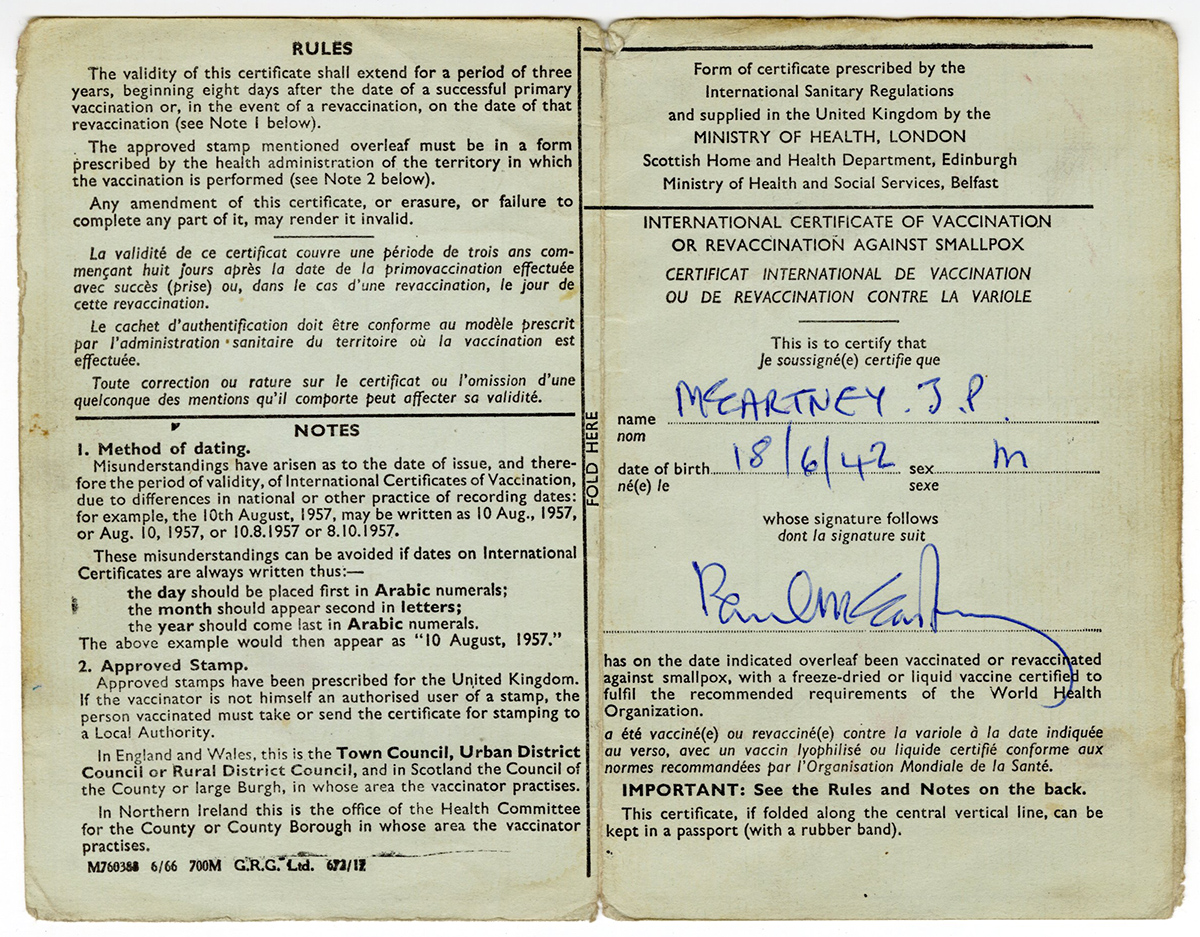 RULES
The validity of this certificate shall extend for a period of three
years, beginning eight days after the date of a successful primary
vaccination or, in the event of a revaccination, on the date of that
revaccination (see Note 1 below).
The approved stamp mentioned overleaf must be in a form
prescribed by the health administration of the territory in which
the vaccination is performed (see Note 2 below).
Any amendment of this certificate, or erasure, or failure to
complete any part of it, may render it invalid.
La validité de ce certificat couvre une période de trois ans com-
mençant huit jours après la date de la primovaccination effectuée
avec succès (prise) ou, dans le cas d'une revaccination, le jour de
cette revaccination.
Le cachet d'authentification doit être conforme au modèle prescrit
par l'administration sanitaire du territoire où la vaccination est
effectuée.
Toute correction ou rature sur le certificat ou l'omission d'une
quelconque des mentions qu'il comporte peut affecter sa validité.
NOTES
1. Method of dating.
Misunderstandings have arisen as to the date of issue, and there-
fore the period of validity, of International Certificates of Vaccination,
due to differences in national or other practice of recording dates:
for example, the 10th August, 1957, may be written as 10 Aug., 1957,
or Aug. 10, 1957, or 10.8.1957 or 8.10.1957.
These misunderstandings can be avoided if dates on International
Certificates are always written thus:—
the day should be placed first in Arabic numerals;
the month should appear second in letters;
the year should come last in Arabic numerals.
The above example would then appear as "10 August, 1957."
2. Approved Stamp.
Approved stamps have been prescribed for the United Kingdom.
If the vaccinator is not himself an authorised user of a stamp, the
person vaccinated must take or send the certificate for stamping to
a Local Authority.
In England and Wales, this is the Town Council, Urban District
Council or Rural District Council, and in Scotland the Council of
the County or large Burgh, in whose area the vaccinator practises.
In Northern Ireland this is the office of the Health Committee
for the County or County Borough in whose area the vaccinator
practises.
M760388 6/66 700M G.R.G. Ltd. 672/12
FOLD HERE
Form of certificate prescribed by the
International Sanitary Regulations
and supplied in the United Kingdom by the
MINISTRY OF HEALTH, LONDON
Scottish Home and Health Department, Edinburgh
Ministry of Health and Social Services, Belfast
INTERNATIONAL CERTIFICATE OF VACCINATION
OR REVACCINATION AGAINST SMALLPOX
CERTIFICAT INTERNATIONAL DE VACCINATION
OU DE REVACCINATION CONTRE LA VARIOLE
This is to certify that
Je soussigné(e) certifie que
name McCARTNEY. J.P.
nom
date of birth 18/6/42 sex M
né(e) le sexe
whose signature follows
dont la signature suit
Paul McCartney
has on the date indicated overleaf been vaccinated or revaccinated
against smallpox, with a freeze-dried or liquid vaccine certified to
fulfil the recommended requirements of the World Health
Organization.
a été vacciné(e) ou revacciné(e) contre la variole à la date indiquée
au verso, avec un vaccin lyophilisé ou liquide certifié conforme aux
normes recommandées par l'Organisation Mondiale de la Santé.
IMPORTANT: See the Rules and Notes on the back.
This certificate, if folded along the central vertical line, can be
kept in a passport (with a rubber band).